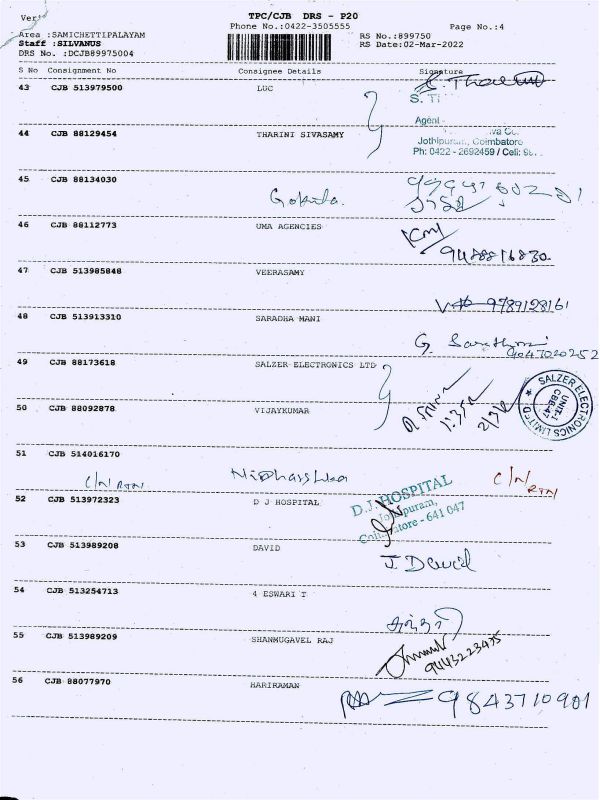 TPC/CJB DRS - P20
Phone No.:0422-3505555 Page No.:4
Area :SAMICHETTIPALAYAM RS No.:899750
Staff :SILVANUS RS Date:02-Mar-2022
DRS No. :DCJB89975004
S No Consignment No Consignee Details Signature
43 CJB 513979500 LGC
S. T
Agent
44 CJB 88129454 THARINI SIVASAMY
Jothipuram, Coimbatore
Ph: 0422 - 2692459 / Cell: 9
45 CJB 88134030 Gokula.
46 CJB 88112773 UMA AGENCIES
9488816830
47 CJB 513985848 VEERASAMY
9789128161
48 CJB 513913310 SARADHA MANI
G. 9047020252
49 CJB 88173618 SALZER ELECTRONICS LTD
SALZER ELECTRONICS LIMITED
UNIT-I
CBE-47
50 CJB 88092878 VIJAYKUMAR
51 CJB 514016170
C/N RTN C/N RTN
52 CJB 513972323 D J HOSPITAL
D.J. HOSPITAL
Jothipuram,
Coimbatore - 641 047
53 CJB 513989208 DAVID
J. David
54 CJB 513254713 4 ESWARI T
55 CJB 513989209 SHANMUGAVEL RAJ
9443223475
56 CJB 88077970 HARIRAMAN
9843710901